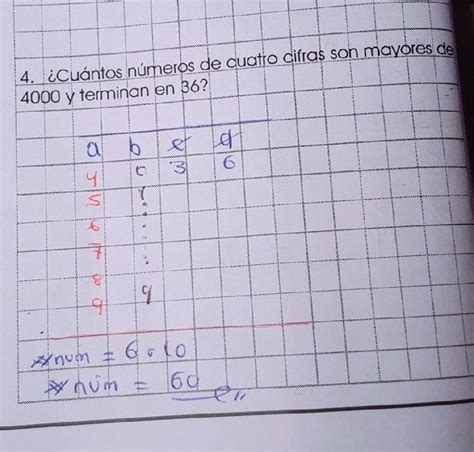 4. ¿Cuántos números de cuatro cifras son mayores de
4000 y terminan en 36?
a b c d
4 0 3 6
5 1
6
7
8
9 9
# num = 6 . 10
# núm = 60